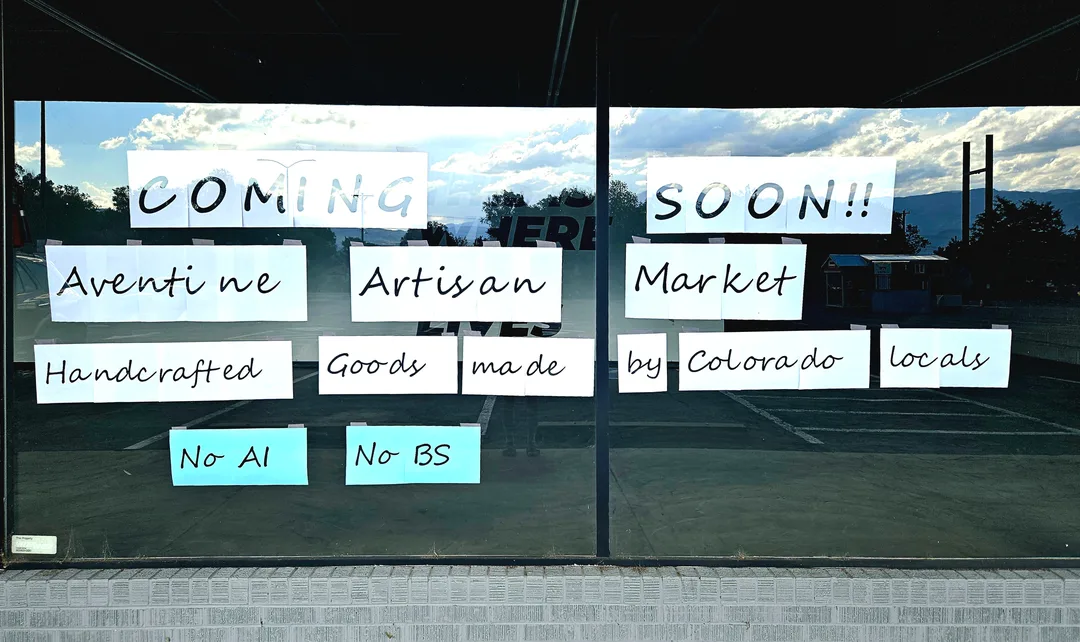 COMING SOON!!
WHERE
Aventine Artisan Market
LIVES
Handcrafted Goods made by Colorado locals
No AI No BS